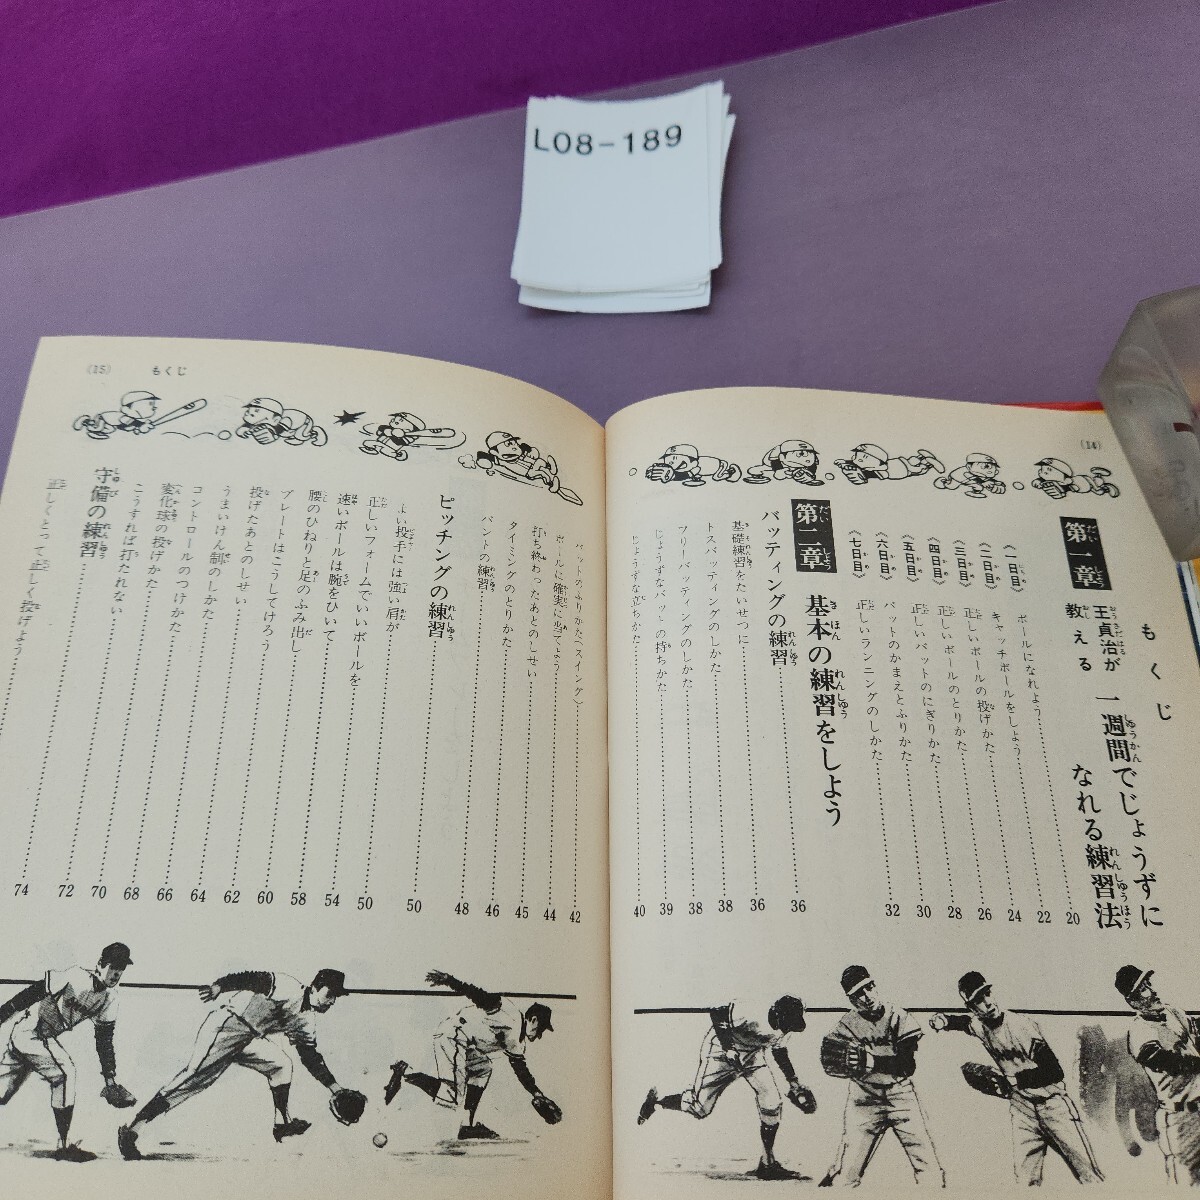 L08-189
(14)
もくじ
第一章 王貞治が教える 一週間でじょうずになれる練習法
《一日目》 ボールになれよう 20
《二日目》 キャッチボールをしよう 22
《三日目》 正しいボールの投げかた 24
《四日目》 正しいボールのとりかた 26
《五日目》 正しいバットのにぎりかた 28
《六日目》 バットのかまえとふりかた 30
《七日目》 正しいランニングのしかた 32
第二章 基本の練習をしよう
バッティングの練習 36
基礎練習をたいせつに 36
トスバッティングのしかた 38
フリーバッティングのしかた 38
じょうずなバットの持ちかた 39
じょうずな立ちかた 40
(15) もくじ
バットのふりかた〈スイング〉 42
ボールに確実に当てよう 44
打ち終わったあとのしせい 45
タイミングのとりかた 46
バントの練習 48
ピッチングの練習 50
よい投手には強い肩が 50
正しいフォームでいいボールを 54
速いボールは腕をひいて 58
腰のひねりと足のふみ出し 60
プレートはこうしてけろう 62
投げたあとのしせい 64
うまいけん制のしかた 66
コントロールのつけかた 68
変化球の投げかた 70
こうすれば打たれない 72
守備の練習 74
正しくとって正しく投げよう